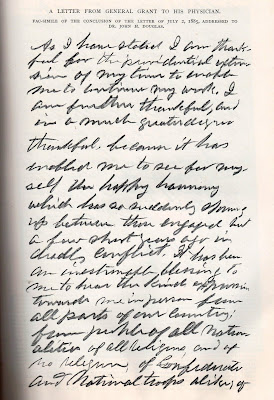 A LETTER FROM GENERAL GRANT TO HIS PHYSICIAN.
FAC-SIMILE OF THE CONCLUSION OF THE LETTER OF JULY 2, 1885, ADDRESSED TO
DR. JOHN H. DOUGLAS.
As I have stated I am thank-
ful for the providential exten-
sion of my time to enable
me to continue my work. I
am further thankful, and
in a much greater degree
thankful, because it has
enabled me to see for my-
self the happy harmony
which has so suddenly sprung
up between those engaged but
a few short years ago in
deadly conflict. It has been
an inestimable blessing to
me to hear the kind expressions
towards me in person from
all parts of our country;
from people of all nation-
alities of all religions, and of
no religion, of Confederate
and National troops alike; of